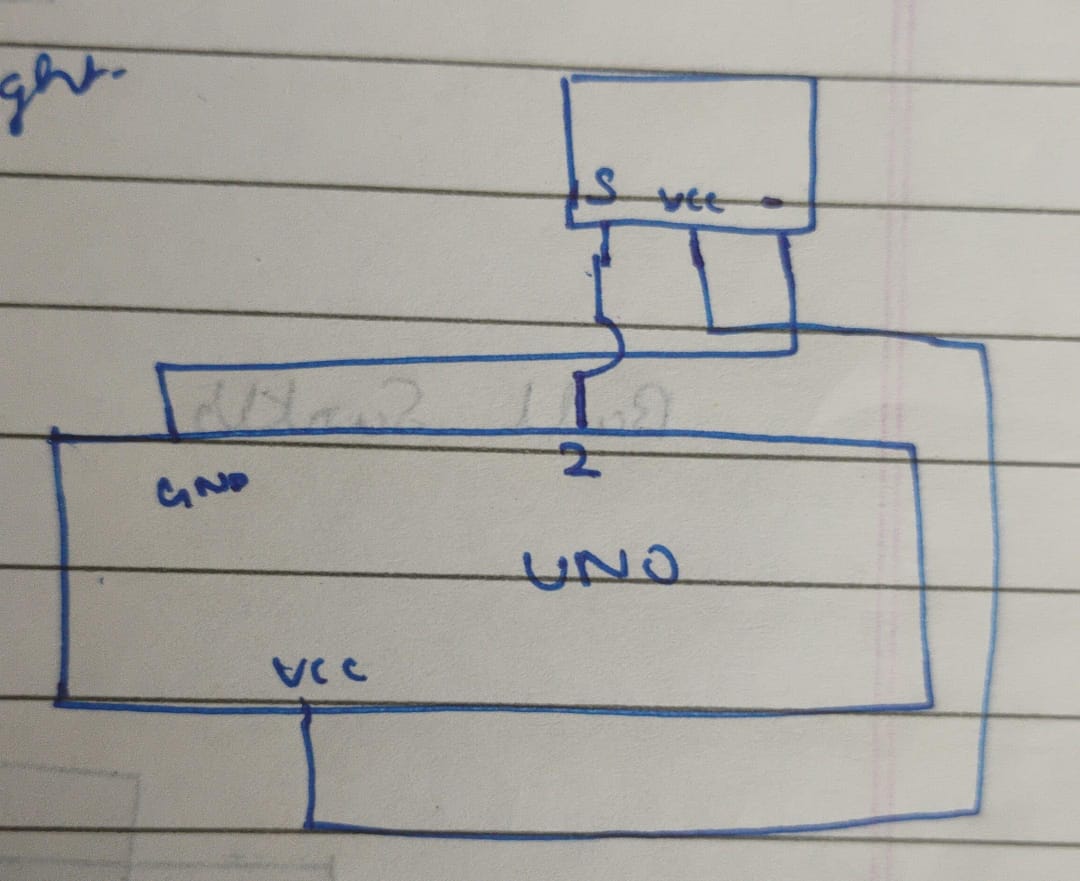 ght.
S VCC -
GND 2
UNO
VCC